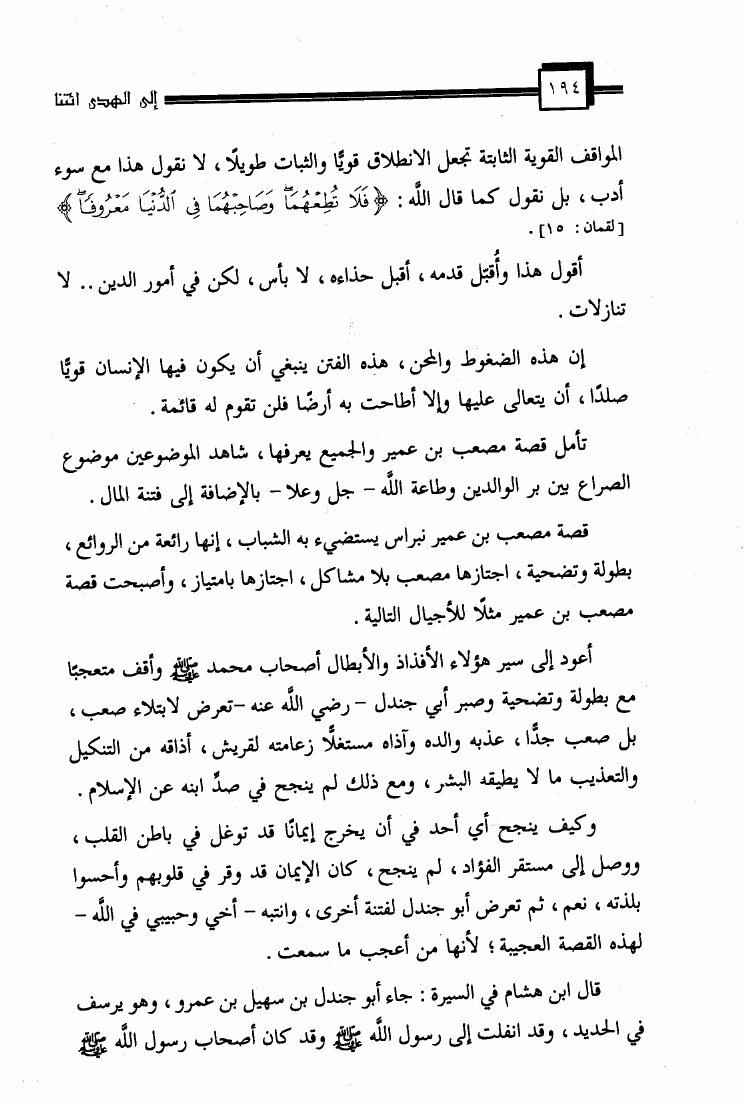 ١٩٤
إلى الهدى ائتنا
المواقف القوية الثابتة تجعل الانطلاق قويًّا والثبات طويلًا ، لا نقول هذا مع سوء
أدب ، بل نقول كما قال اللَّه : ﴿ فَلَا تُطِعْهُمَا ۖ وَصَاحِبْهُمَا فِي ٱلدُّنْيَا مَعْرُوفًا ۖ ﴾
[لقمان : ١٥] .
أقول هذا وأُقبّل قدمه ، أقبل حذاءه ، لا بأس ، لكن في أمور الدين .. لا
تنازلات .
إن هذه الضغوط والمحن ، هذه الفتن ينبغي أن يكون فيها الإنسان قويًّا
صلدًا ، أن يتعالى عليها وإلا أطاحت به أرضًا فلن تقوم له قائمة .
تأمل قصة مصعب بن عمير والجميع يعرفها ، شاهد الموضوعين موضوع
الصراع بين بر الوالدين وطاعة اللَّه - جل وعلا - بالإضافة إلى فتنة المال .
قصة مصعب بن عمير نبراس يستضيء به الشباب ، إنها رائعة من الروائع ،
بطولة وتضحية ، اجتازها مصعب بلا مشاكل ، اجتازها بامتياز ، وأصبحت قصة
مصعب بن عمير مثلًا للأجيال التالية .
أعود إلى سير هؤلاء الأفذاذ والأبطال أصحاب محمد ﷺ وأقف متعجبًا
مع بطولة وتضحية وصبر أبي جندل - رضي اللَّه عنه -تعرض لابتلاء صعب ،
بل صعب جدًّا ، عذبه والده وآذاه مستغلًّا زعامته لقريش ، أذاقه من التنكيل
والتعذيب ما لا يطيقه البشر ، ومع ذلك لم ينجح في صدِّ ابنه عن الإسلام .
وكيف ينجح أي أحد في أن يخرج إيمانًا قد توغل في باطن القلب ،
ووصل إلى مستقر الفؤاد ، لم ينجح ، كان الإيمان قد وقر في قلوبهم وأحسوا
بلذته ، نعم ، ثم تعرض أبو جندل لفتنة أخرى ، وانتبه - أخي وحبيبي في اللَّه -
لهذه القصة العجيبة ؛ لأنها من أعجب ما سمعت .
قال ابن هشام في السيرة : جاء أبو جندل بن سهيل بن عمرو ، وهو يرسف
في الحديد ، وقد انفلت إلى رسول اللَّه ﷺ وقد كان أصحاب رسول اللَّه ﷺ